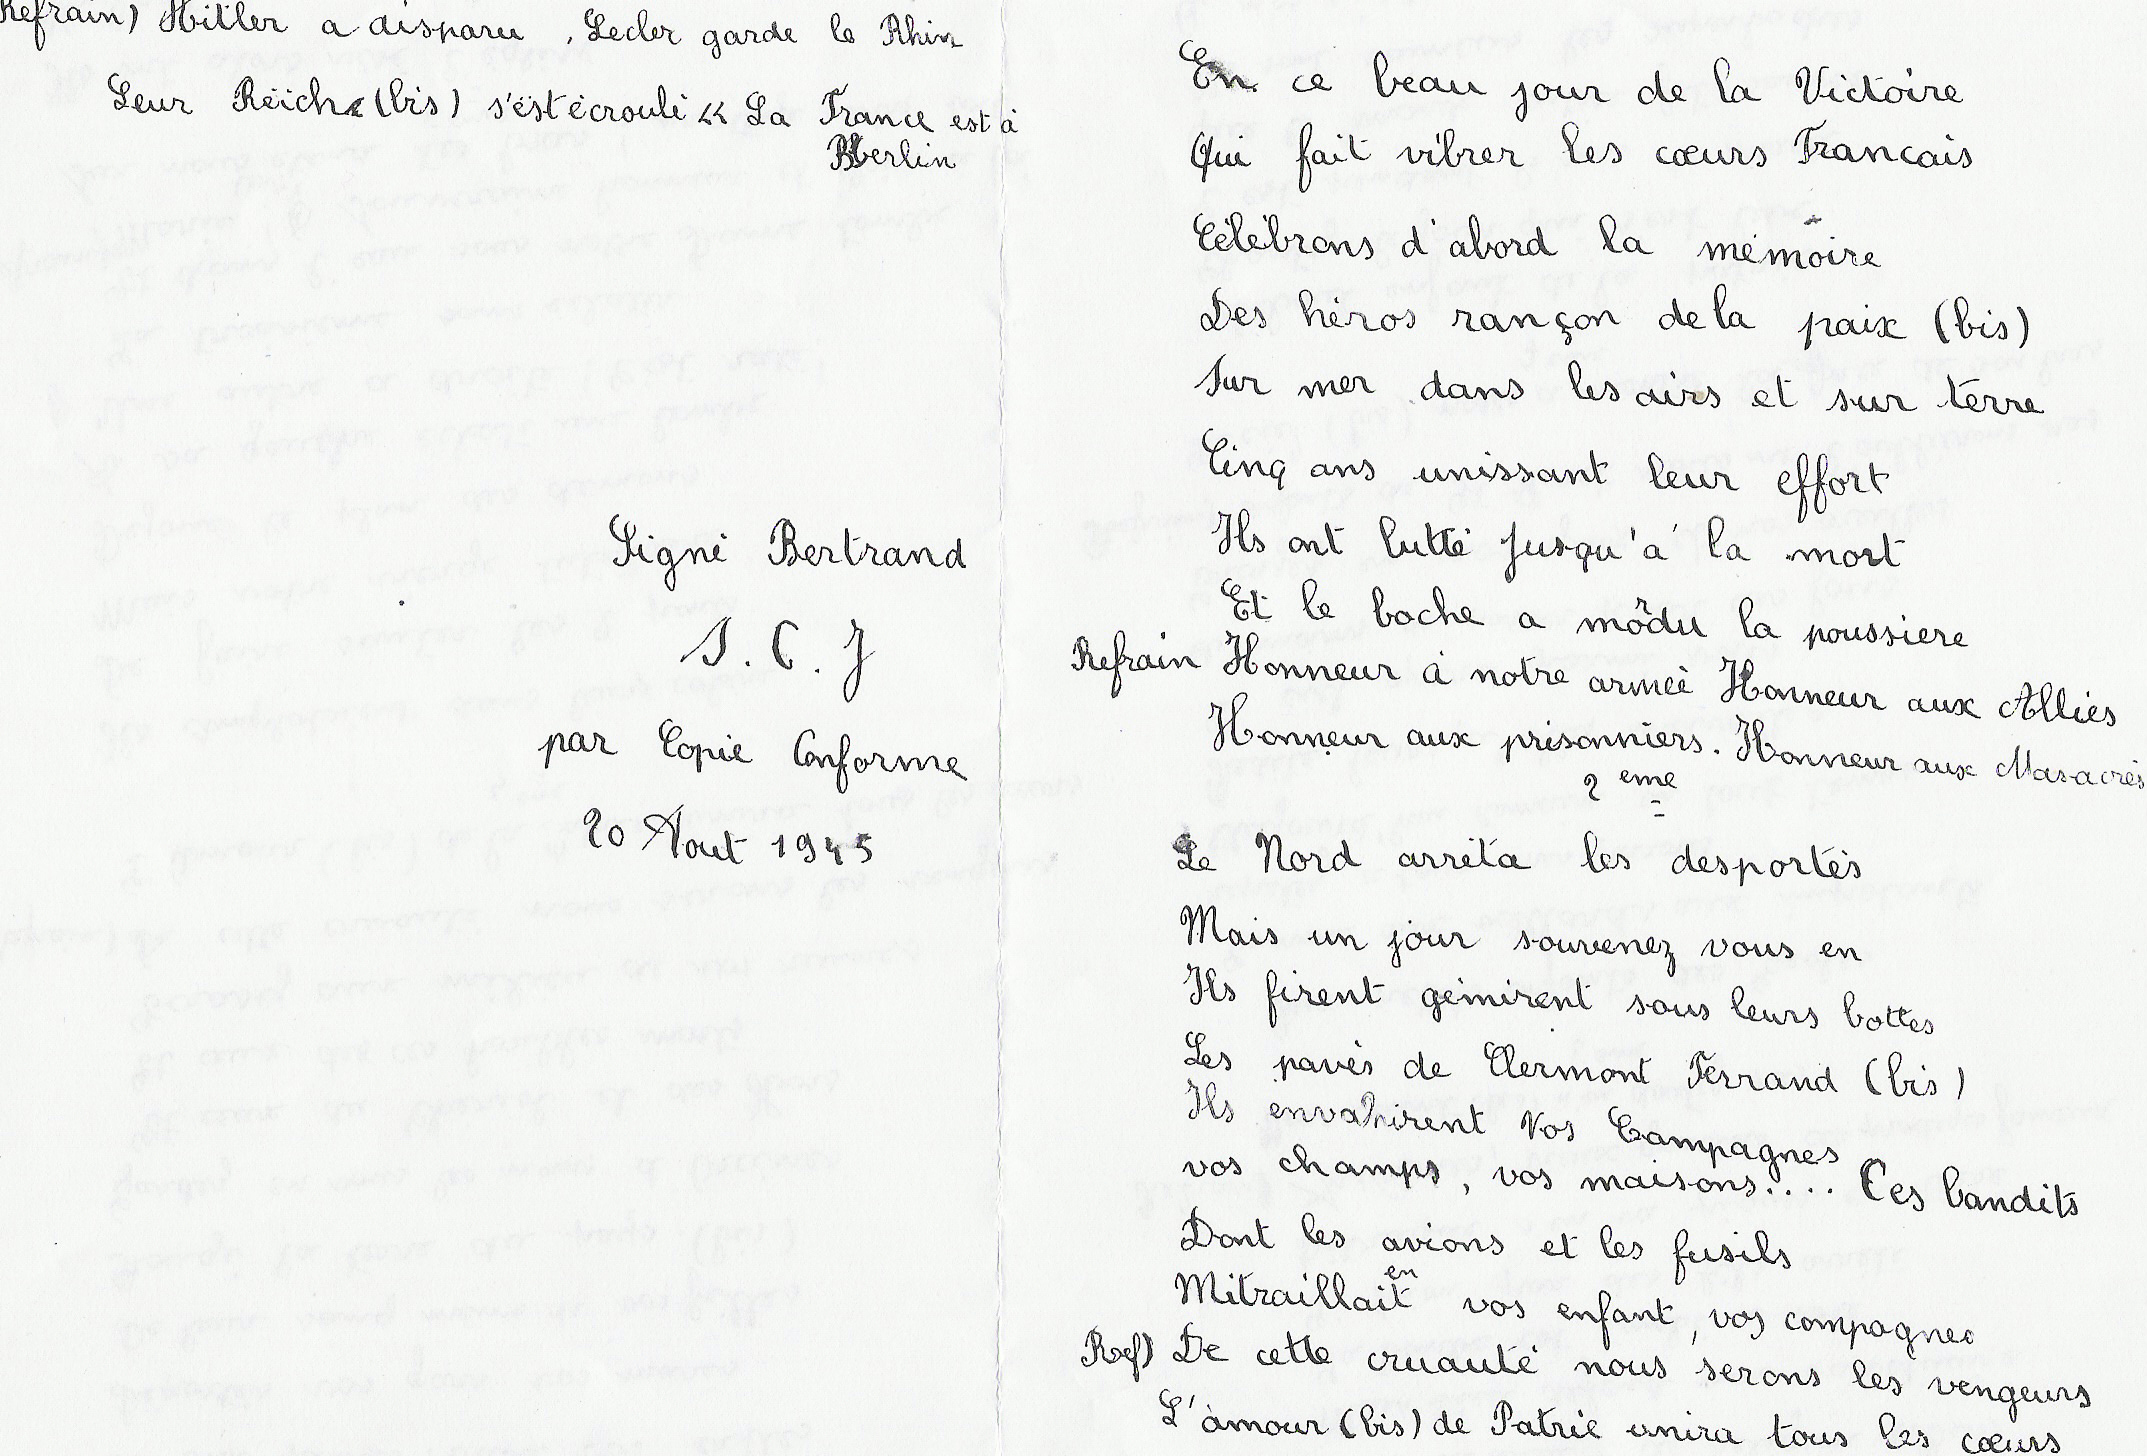 Refrain) Hitler a disparu, Lecler garde le Rhin
Leur Reich (bis) s'est écroulé « La France est à
Berlin
Signé Bertrand
S. C. J
par Copie Conforme
20 Aout 1945
En ce beau jour de la Victoire
Qui fait vibrer les cœurs Francais
Célébrons d'abord la mémoire
Des héros rançon de la paix (bis)
Sur mer dans les airs et sur terre
Cinq ans unissant leur effort
Ils ont lutté Jusqu'à la mort
Et le boche a mordu la poussiere
Refrain Honneur à notre armée Honneur aux Alliés
Honneur aux prisonniers. Honneur aux Masacrés
2 eme
Le Nord arrêta les desportés
Mais un jour souvenez vous en
Ils firent gémirent sous leurs bottes
Les pavés de Clermont Ferrand (bis)
Ils envahirent Vos Campagnes
vos champs, vos maisons.... Ces bandits
Dont les avions et les fusils
Mitraillaient vos enfant, vos compagnes
Ref) De cette cruauté nous serons les vengeurs
L'amour (bis) de Patrie unira tous les cœurs